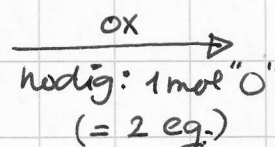 ox
nodig: 1 mol "O"
(= 2 eq.)